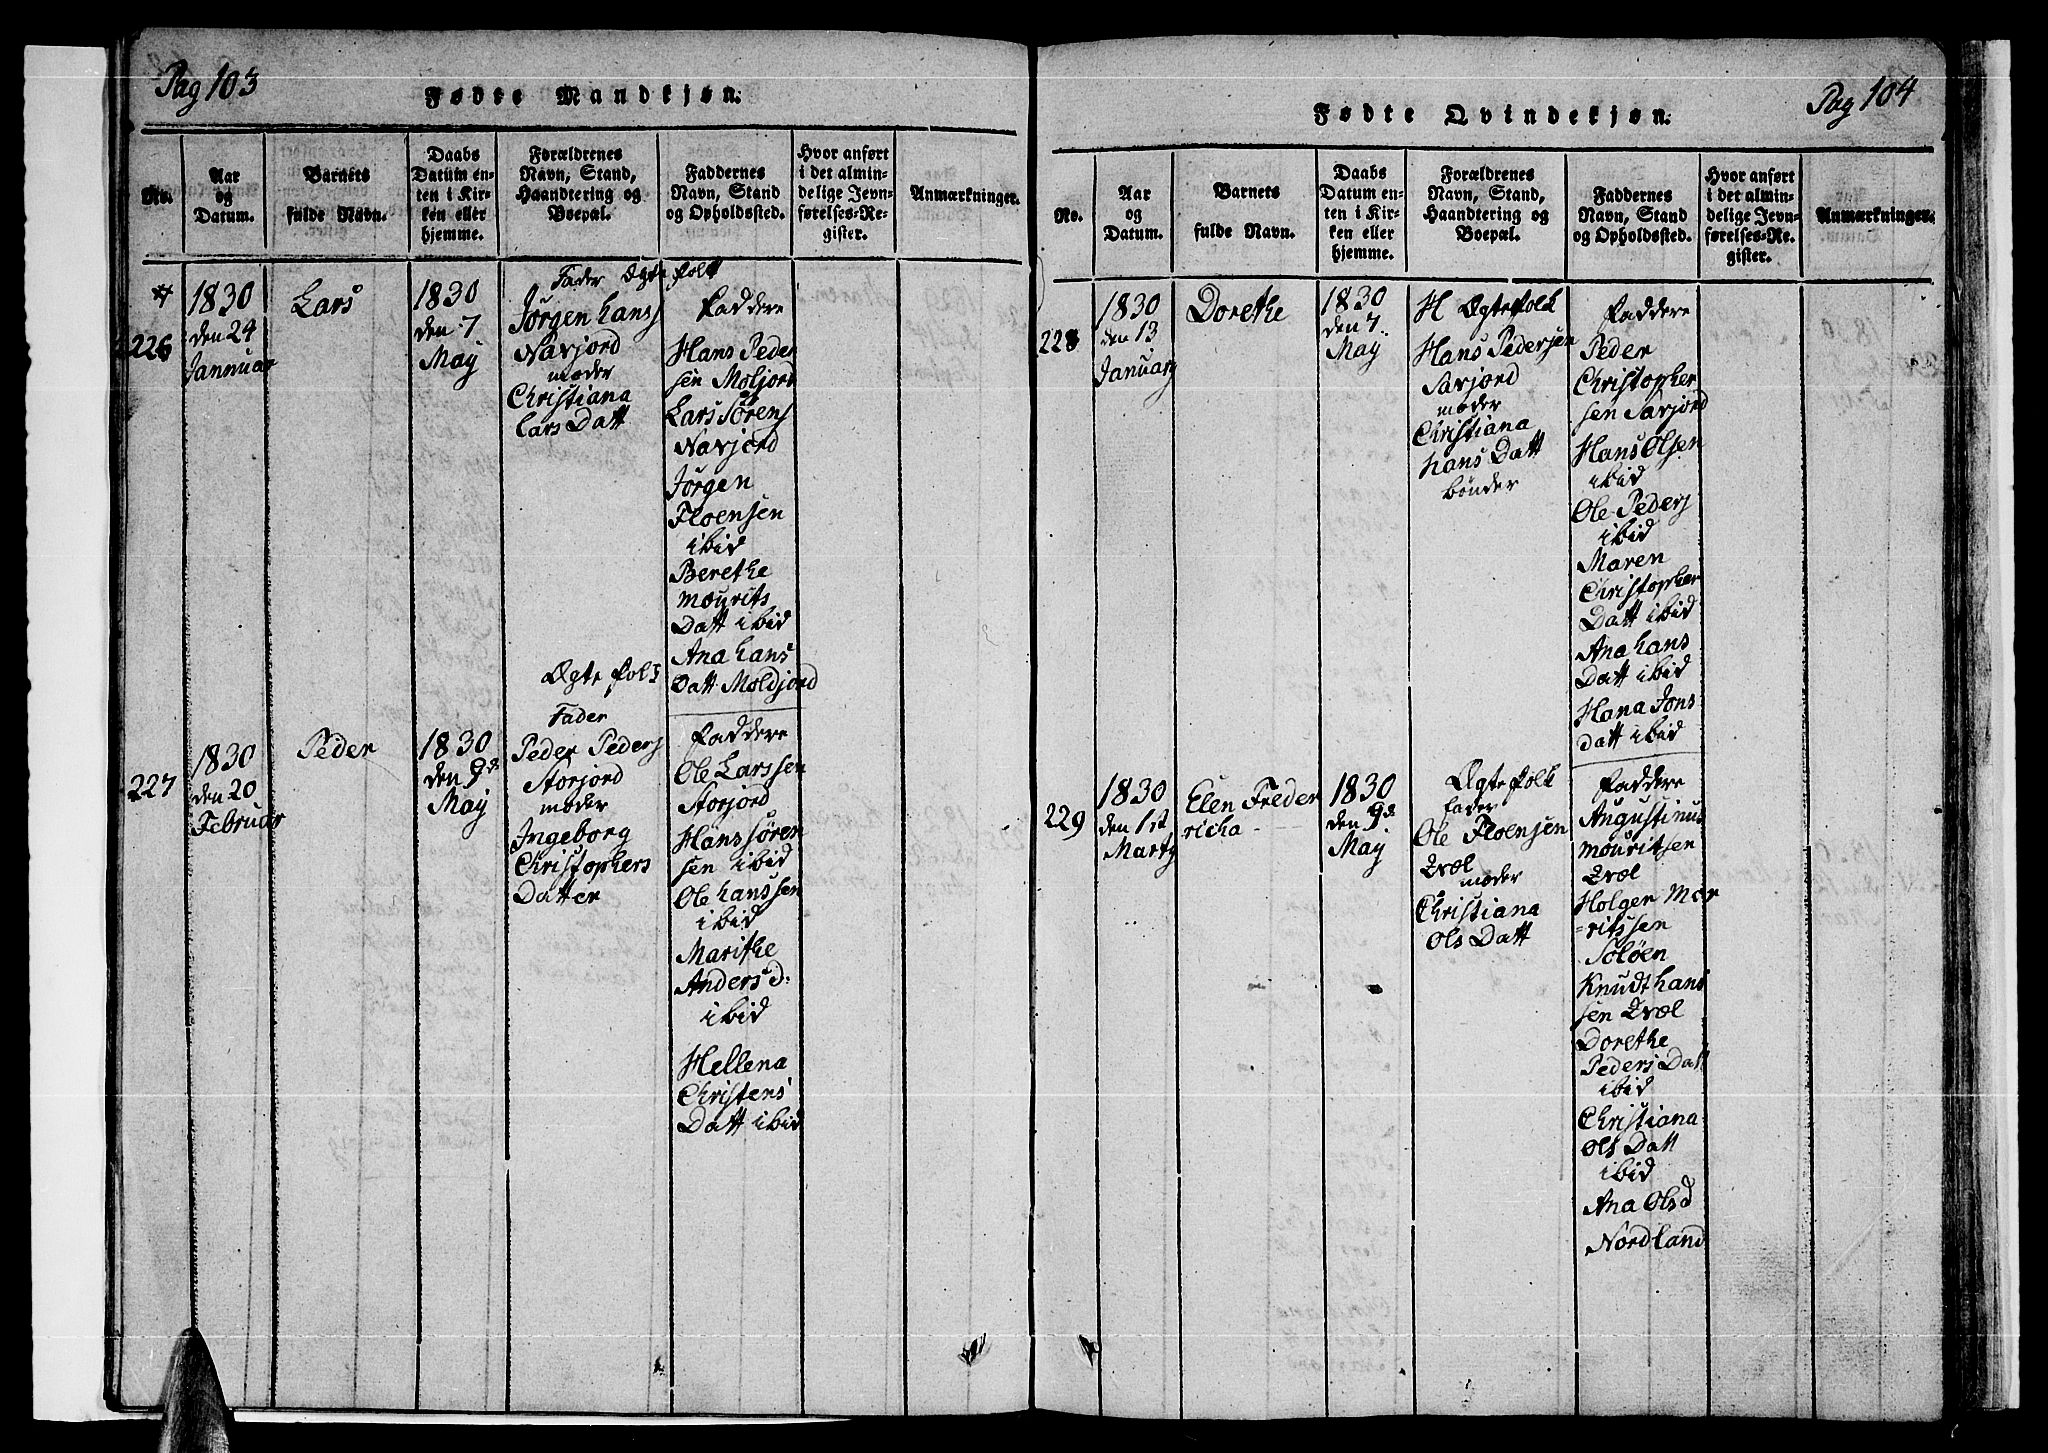 Pag 103
Fødte Mandkjøn.
No.
Aar
og
Datum.
Barnets
fulde Navn.
Daabs
Datum en-
ten i Kir-
ken eller
hjemme.
Forældrenes
Navn, Stand,
Haandtering og
Boepæl.
Faddernes
Navn, Stand
og Opholdssted.
Hvor anført
i det almin-
delige Jevn-
førelses-Re-
gister.
Anmærkninger.
226
1830
den 24
Jannuar
Lars
1830
den 7
May
Fader Ægte folk
Jørgen hans
Navjord
moder
Christiana
Lars Datt
Faddere
Hans Peder
sen Moljord
Lars Sørens
Navjord
Jørgen
Floensen
ibid
Berethe
mourits
Datt ibid
Ana hans
Datt Moldjord
227
1830
den 20
Februar
Peder
1830
den 9d
May
Ægte folk
Fader
Peder Peders
Storjord
moder
Ingeborg
Christophers
Datter
Faddere
Ole Larssen
Storjord
Hans søren
sen ibid
Ole hanssen
ibid
Marithe
Anders d:
ibid
Hellena
Christens
Datt ibid
Pag 104
Fødte Qvindekjøn.
No.
Aar
og
Datum.
Barnets
fulde Navn.
Daabs
Datum en-
ten i Kir-
ken eller
hjemme.
Forældrenes
Navn, Stand,
Haandtering og
Boepæl.
Faddernes
Navn, Stand
og Opholdssted.
Hvor anført
i det almin-
delige Jevn-
førelses-Re-
gister.
Anmærkninger.
228
1830
den 13
January
Dorethe
1830
den 7.
May
H Ægtefolk
Hans Pedersen
Savjord
moder
Christiana
hans Datt
bønder
Faddere
Peder
Christopher
sen Savjord
Hans Olsen
ibid
Ole Peders
ibid
Maren
Christopher
Datt ibid
Ana hans
Datt ibid
Hana Jons
datt ibid
229
1830
den 1st
Marty
Elen Freder
richa
1830
den 9d
May
Ægte folk
fader
Ole Floensen
Evæl
moder
Christiana
Ols Datt
Faddere
Augustinus
mouritsen
Evæl
Holger Mor
=ritssen
Soløen
Knudt hans
sen Evæl
Dorethe
Peders Datt
ibid
Christiana
Ols Datt
ibid
Ana Ols d
Nordland